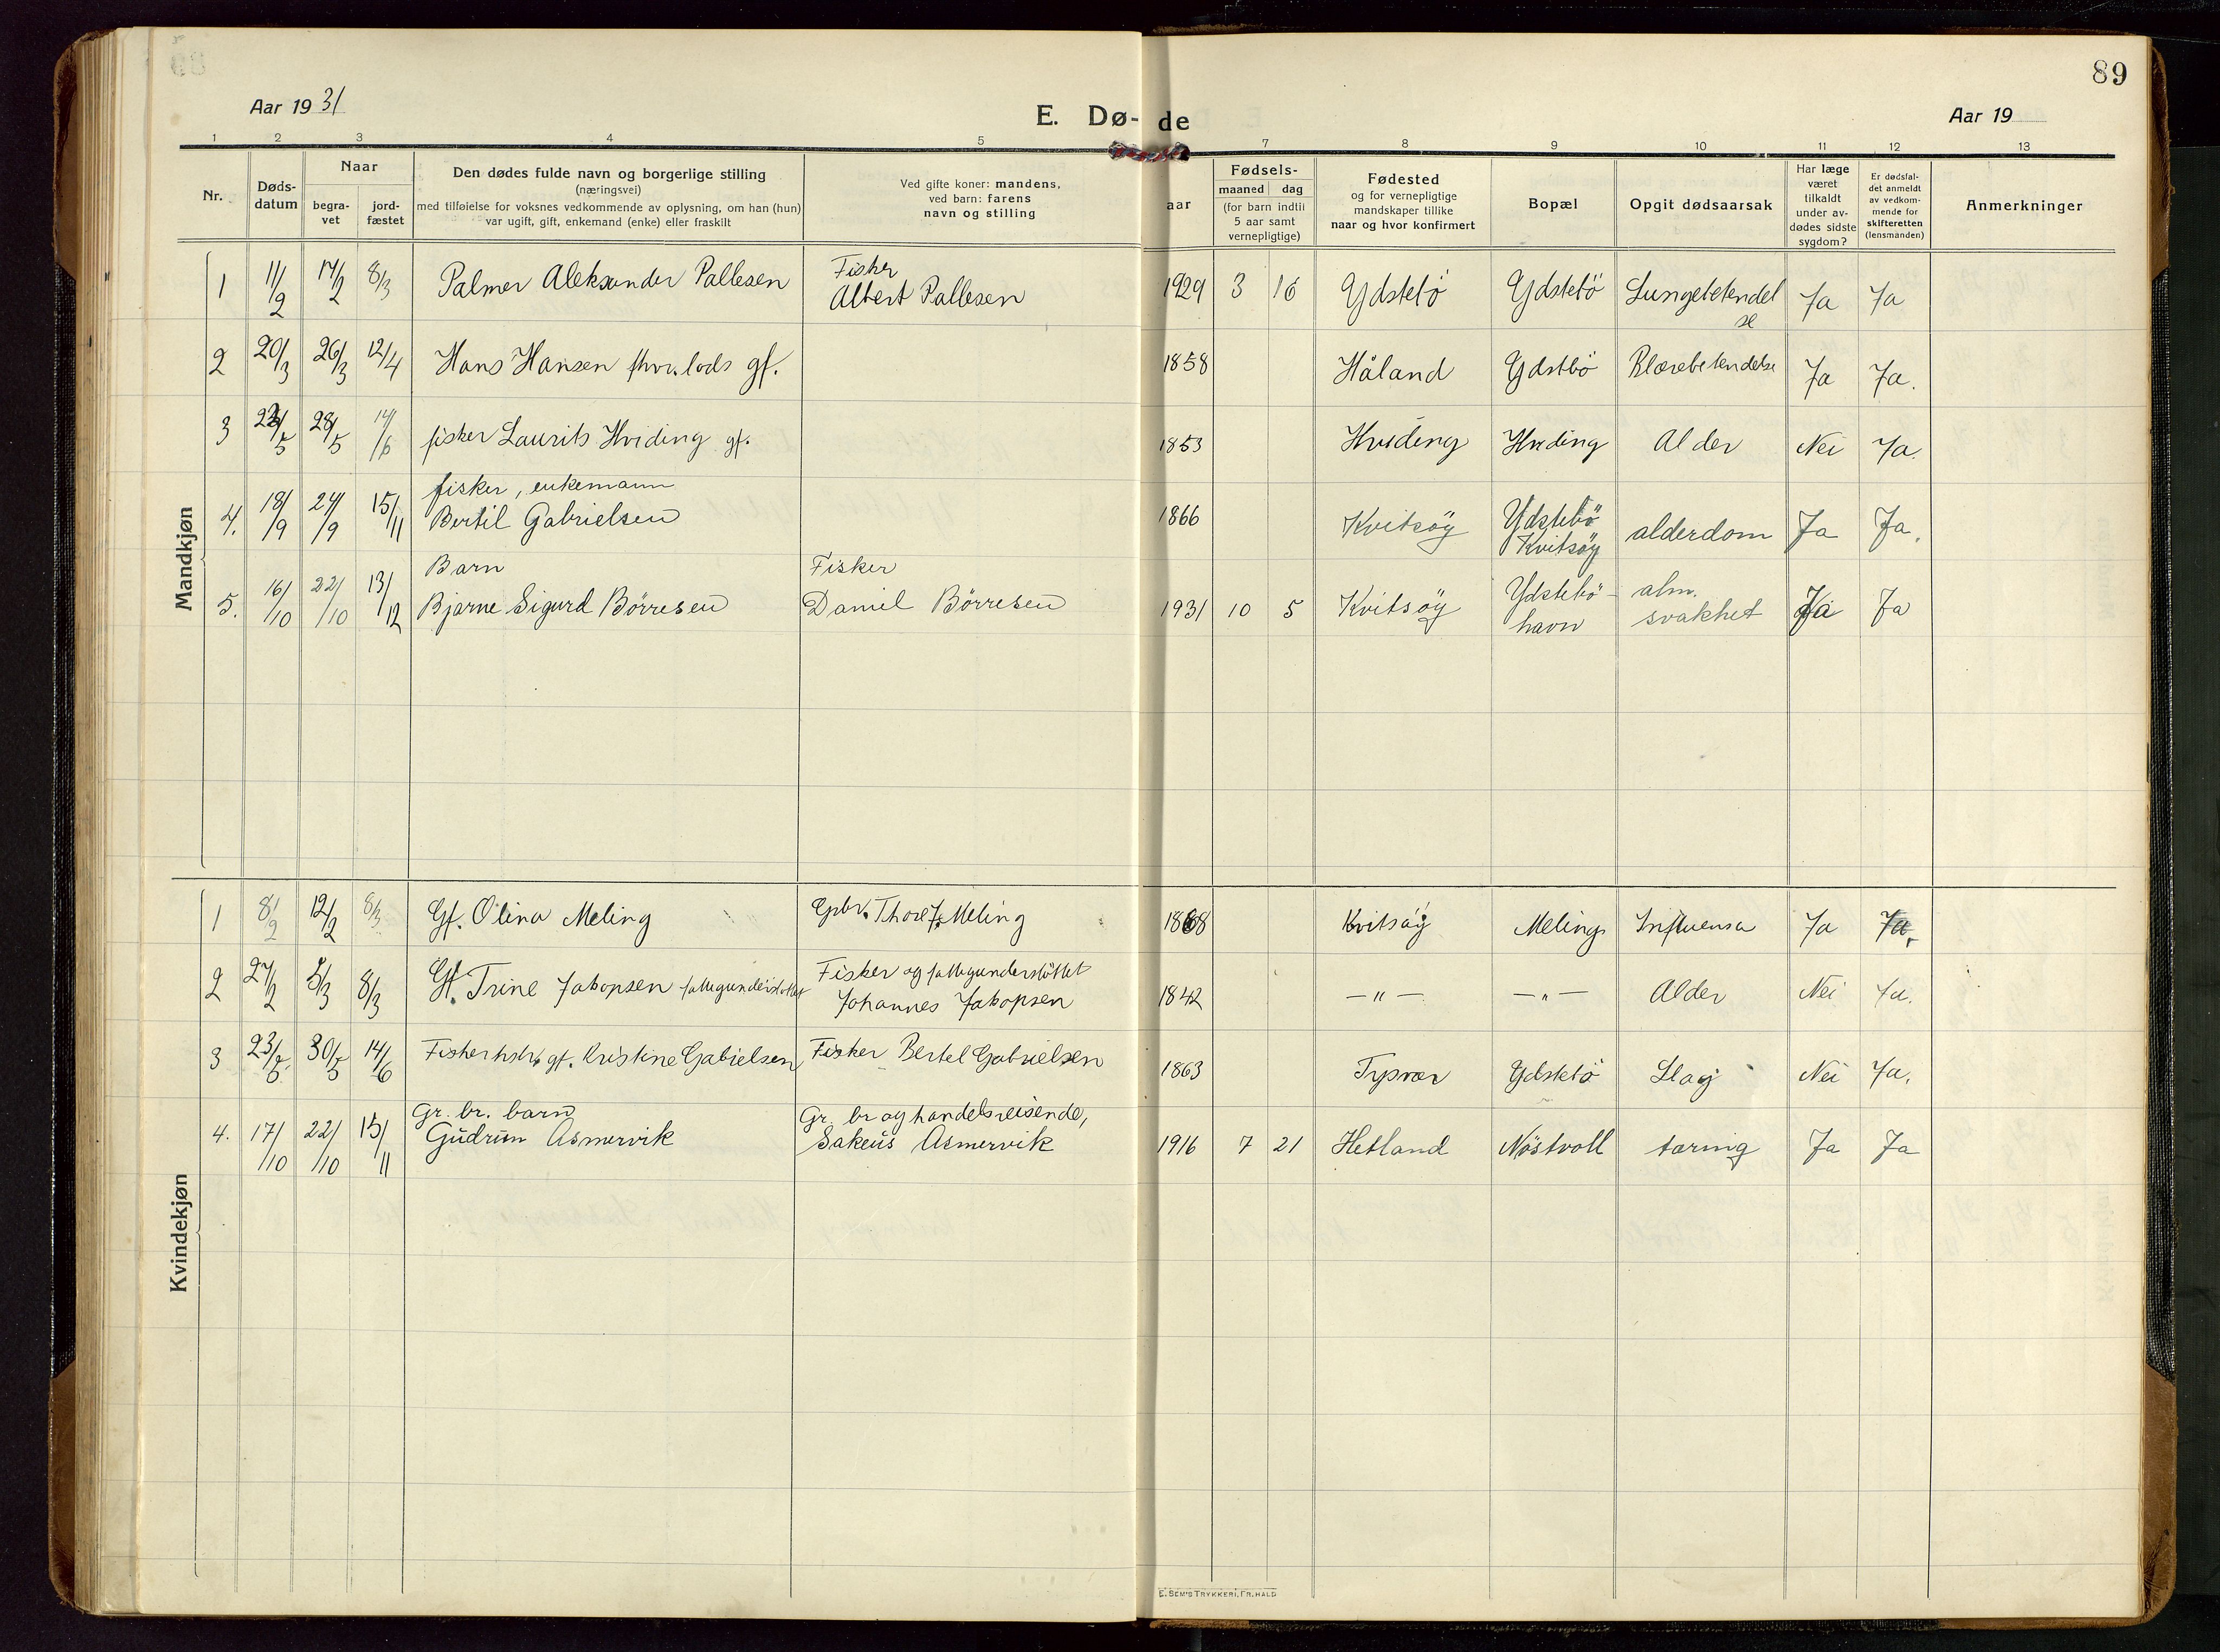 89
Aar 1931
E. Dø-de
Aar 19
1 2 3 4 5 7 8 9 10 11 12 13
Nr.
Døds-
datum
Naar
begra-
vet
jord-
fæstet
Den dødes fulde navn og borgerlige stilling
(næringsvei)
med tilføielse for voksnes vedkommende av oplysning, om han (hun)
var ugift, gift, enkemand (enke) eller fraskilt
Ved gifte koner: mandens,
ved barn: farens
navn og stilling
aar
Fødsels-
maaned dag
(for barn indtil
5 aar samt
vernepligtige)
Fødested
og for vernepligtige
mandskaper tillike
naar og hvor konfirmert
Bopæl
Opgit dødsaarsak
Har læge
været
tilkaldt
under av-
dødes sidste
sygdom?
Er dødsfal-
det anmeldt
av vedkom-
mende for
skifteretten
(lensmanden)
Anmerkninger
Mandkjøn
1 11/2 17/2 8/3 Palmer Aleksander Pallesen Fisker
Albert Pallesen 1929 3 16 Ydstebö Ydstebö Lungebetendel
se Ja Ja
2 20/3 26/3 12/4 Hans Hansen fhv. lods gf. 1858 Håland Ydstbö Blærebetendelse Ja Ja.
3 23/5 28/5 14/6 fisker Laurits Hviding gf. 1853 Hviding Hviding Alder Nei Ja.
4. 18/9 24/9 15/11 fisker, enkemann
Bertil Gabrielsen 1866 Kvitsöy Ydstebö
Kvitsöy alderdom Ja Ja.
5. 16/10 22/10 13/12 Barn
Bjarne Sigurd Börresen Fisker
Daniel Börresen 1931 10 5 Kvitsöy Ydstebö-
havn alm.
svakhet Ja Ja
Kvindekjøn
1 8/2 12/2 8/3 Gf. Olina Meling Gbr. Thore J. Meling 1868 Kvitsöy Meling Influensa Ja Ja.
2 27/2 5/3 8/3 Gf. Trine Jakopsen fattigunderstöttet Fisker og fattigunderstöttet
Johannes Jakopsen 1842 — " — — " — Alder Nei Ja.
3 23/5 30/5 14/6 Fisherhstr. gf. Kristine Gabielsen Fisker Bertel Gabrielsen 1863 Tysvær Ydstebö Slag Nei Ja.
4. 17/10 22/10 15/11 Gr. br. barn
Gudrun Asmervik Gr. br og handelsreisende,
Sakeus Asmervik 1916 7 21 Hetland Nöstvoll tæring Ja Ja
E. SEM'S TRYKKERI, FR.HALD